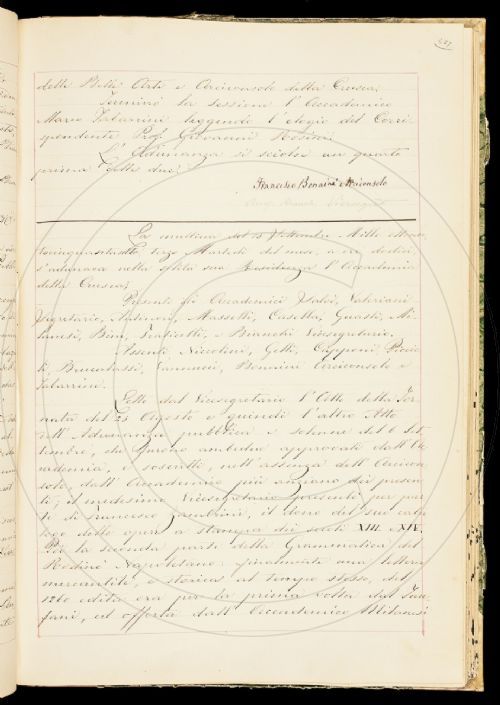 delle Belle Arti e Arciconsole della Crusca.
Terminò la sessione l'Accademico
Marco Tabarrini leggendo l'elogio del Corri-
spondente Prof. Giovanni Rosini
L'Adunanza si sciolse un quarto
prima delle due.
Francesco Bonaini Arciconsolo
La mattina del 15 Settembre Mille otto-
cinquantasette terzo Martedì del mese, a ore dodici,
s'adunava nella solita sua Residenza l'Accademia
della Crusca;
Presenti gli Accademici Valeriani
Segretario, Masselli, Casella, Guasti, Mi-
lanesi, Bini, Fraticelli, e Bianchi Vicesegretario.
Assenti Niccolini, Gelli, Capponi,
Brucalassi, Vannucci, Bonaini Arciconsolo e
Tabarrini.
Letto dal Vicesegretario l'Atto della Tor-
nata del 25 Agosto e quindi l'altro Atto
dell'Adunanza pubblica e solenne del 6 Set-
tembre, che furono ambidue approvati dall'Ac-
cademia, e soscritti, nell'assenza dell'Arcicon-
solo, dall'Accademico più anziano dei presen-
ti; il medesimo Vicesegretario presentò per par-
te di Francesco Zambrini, il dono del suo cata-
logo delle opere a stampa dei secoli XIII e XIV.
Poi la seconda parte della Grammatica del
Rodinò Napoletano. finalmente una lettera
mercantile, e storica al tempo stesso, del
1260 edita ora per la prima volta dal Fan-
fani, ed offerta dall'Accademico Milanesi